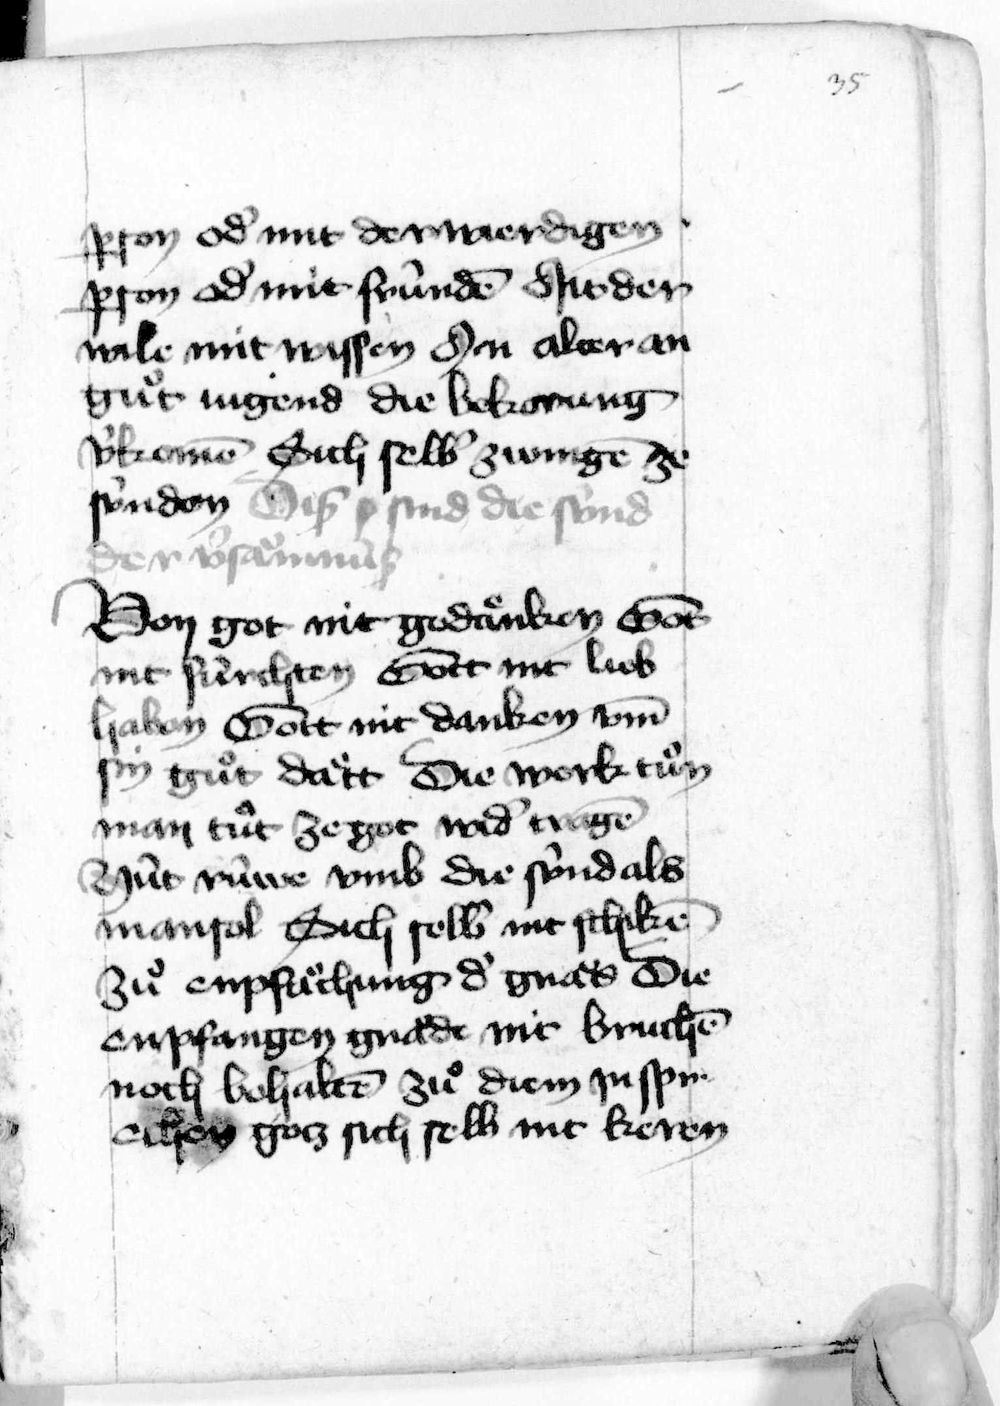 35
ꝑson od̾ mit der wierdigen
ꝑson od̾ mit frúndē Mit der
wile mit wissen An alter an
guͦt iugend die bekorung
v̾komē Sich selb zwingē ze
súnden Dis sind die súnd
der v̾saͧmnús
Von got nit gedaͤnken Got
nit fúrchten Gott nit lieb
haben Gott nit danken vm̄
sin guͦt daͤtt Die werk tuͦn
man tuͦt ze got wid̾ tragē
Nút rúwe vmb die súnd als
man sol Sich selb nit schikē
zuͦ enpfaͤchung d̾ gnad Die
enpfangen gnade nit bruchē
noch behaltē zuͦ diem in spr
echen gotz sich selb nit keren